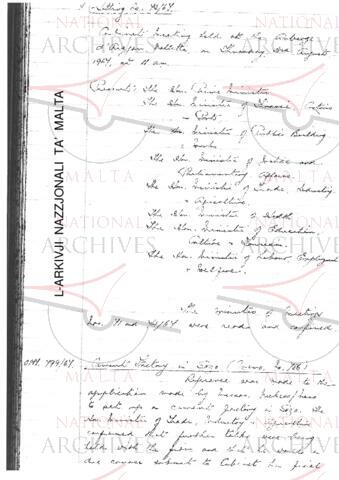 Meeting No. 42/67
Cabinet Meeting held at the Auberge
d'Aragon Valletta on Thursday, 3rd August
1967, at 11 am.
Present: The Hon. Prime Minister
The Hon. Minister of Finance Customs
& Ports
The Hon. Minister of Public Building
& Works
The Hon. Minister of Justice and
Parliamentary Affairs
The Hon. Minister of Trade, Industry
& Agriculture.
The Hon. Minister of Health
The Hon. Minister of Education,
Culture & Tourism
The Hon. Minister of Labour, Employment
& Welfare.
The minutes of meetings
Nos. 41 and 42/67 were read and confirmed
OPM. 799/67. Cement Factory in Gozo (Memo. No. 786)
Reference was made to the
application made by Messrs.
to set up a cement factory in Gozo. The
Hon Minister of Trade, Industry & Agriculture
confirmed that further talks were being
held with the firm and that he would in
due course submit to Cabinet his final
L-ARKIVJI NAZZJONALI TA' MALTA
NATIONAL
ARCHIVES
MALTA